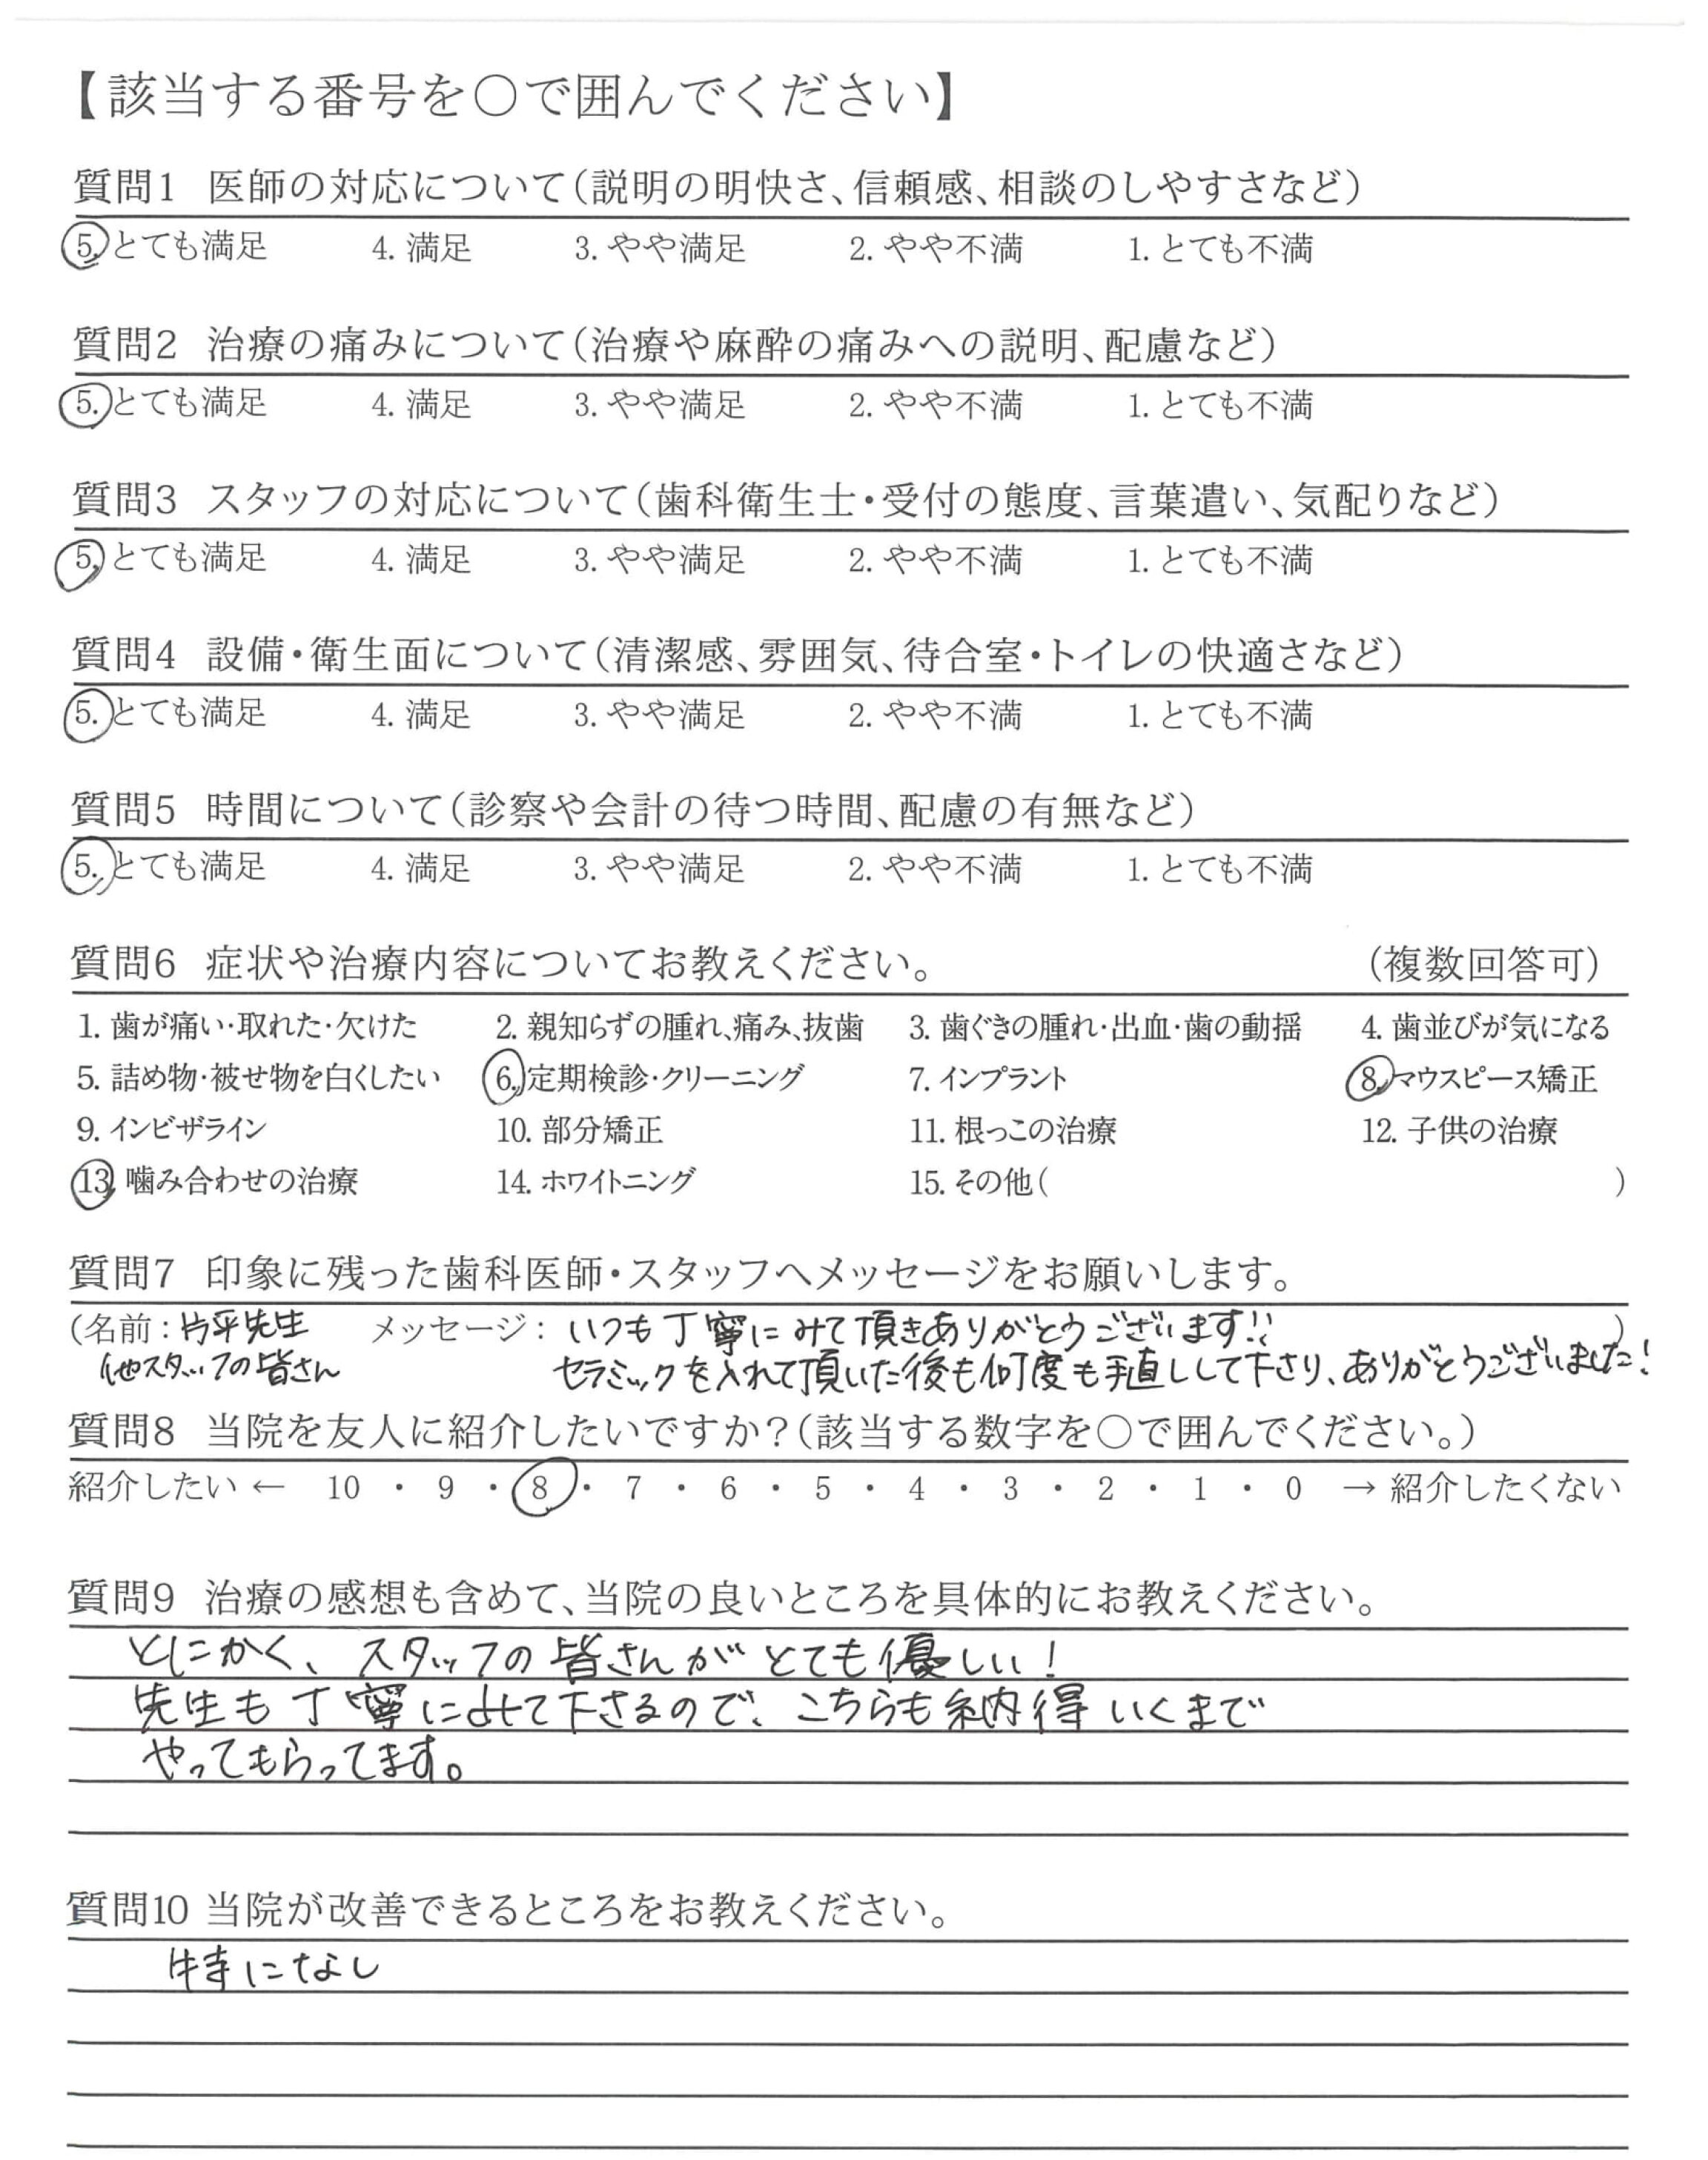 【該当する番号を○で囲んでください】
質問1 医師の対応について(説明の明快さ、信頼感、相談のしやすさなど)
5. とても満足 4. 満足 3. やや満足 2. やや不満 1. とても不満
質問2 治療の痛みについて(治療や麻酔の痛みへの説明、配慮など)
5. とても満足 4. 満足 3. やや満足 2. やや不満 1. とても不満
質問3 スタッフの対応について(歯科衛生士・受付の態度、言葉遣い、気配りなど)
5. とても満足 4. 満足 3. やや満足 2. やや不満 1. とても不満
質問4 設備・衛生面について(清潔感、雰囲気、待合室・トイレの快適さなど)
5. とても満足 4. 満足 3. やや満足 2. やや不満 1. とても不満
質問5 時間について(診察や会計の待つ時間、配慮の有無など)
5. とても満足 4. 満足 3. やや満足 2. やや不満 1. とても不満
質問6 症状や治療内容についてお教えください。 (複数回答可)
1. 歯が痛い・取れた・欠けた 2. 親知らずの腫れ、痛み、抜歯 3. 歯ぐきの腫れ・出血・歯の動揺 4. 歯並びが気になる
5. 詰め物・被せ物を白くしたい 6. 定期検診・クリーニング 7. インプラント 8. マウスピース矯正
9. インビザライン 10. 部分矯正 11. 根っこの治療 12. 子供の治療
13. 噛み合わせの治療 14. ホワイトニング 15. その他( )
質問7 印象に残った歯科医師・スタッフへメッセージをお願いします。
(名前:片平先生 メッセージ: いつも丁寧にみて頂きありがとうございます!! )
他スタッフの皆さん セラミックを入れて頂いた後も何度も手直しして下さり、ありがとうございました!
質問8 当院を友人に紹介したいですか?(該当する数字を○で囲んでください。)
紹介したい ← 10 ・ 9 ・ 8 ・ 7 ・ 6 ・ 5 ・ 4 ・ 3 ・ 2 ・ 1 ・ 0 → 紹介したくない
質問9 治療の感想も含めて、当院の良いところを具体的にお教えください。
とにかく、スタッフの皆さんがとても優しい!
先生も丁寧にみて下さるので、こちらも納得いくまで
やってもらってます。
質問10 当院が改善できるところをお教えください。
特になし